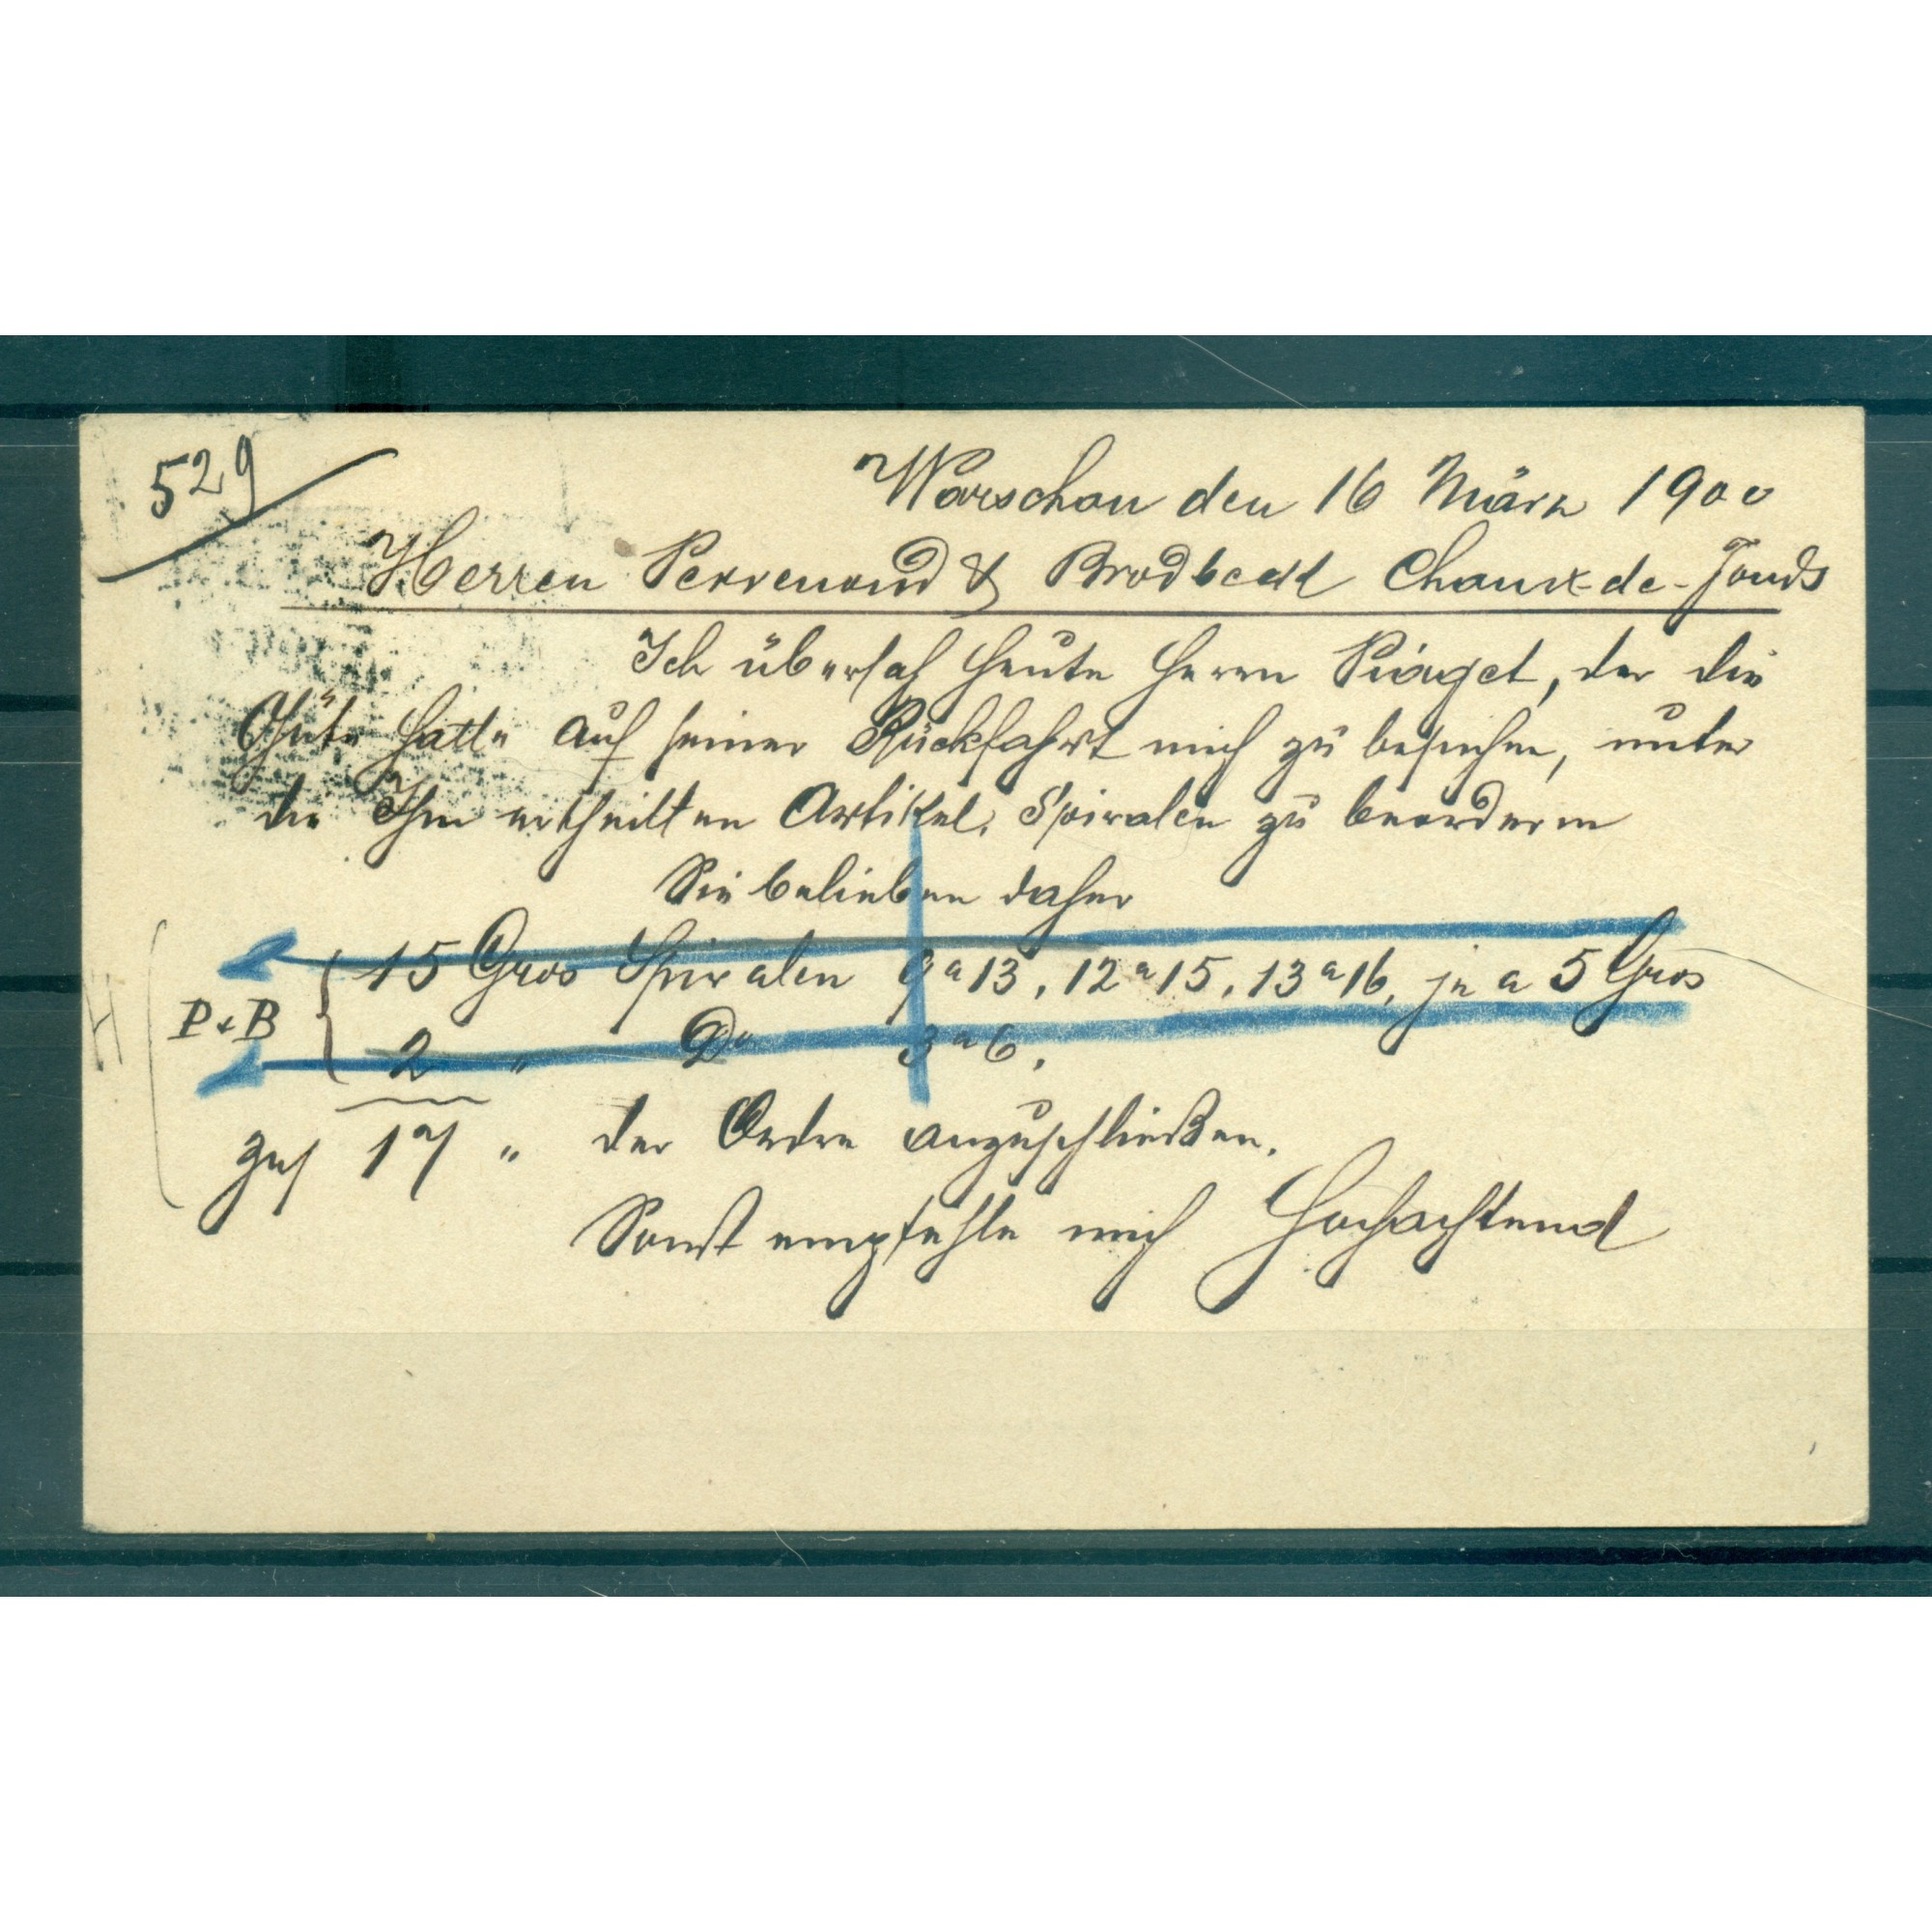 529
Warschau den 16 März 1900
Herren Perrenoud & Brodbeck Chaux-de-Fonds
Ich übersah heute Herrn Piaget, der die
Güte hatte auf seiner Rückfahrt mich zu besuchen, unter
die Ihm ertheilten Artikel, Spiralen zu beordern
Sie belieben daher
15 Gros Spiralen 9 a 13, 12 a 15, 13 a 16, je a 5 Gros
P & B
2 " Do 3 a 6.
zus 17 " der Ordre anzuschließen.
Sonst empfehle mich Hochachtend
H